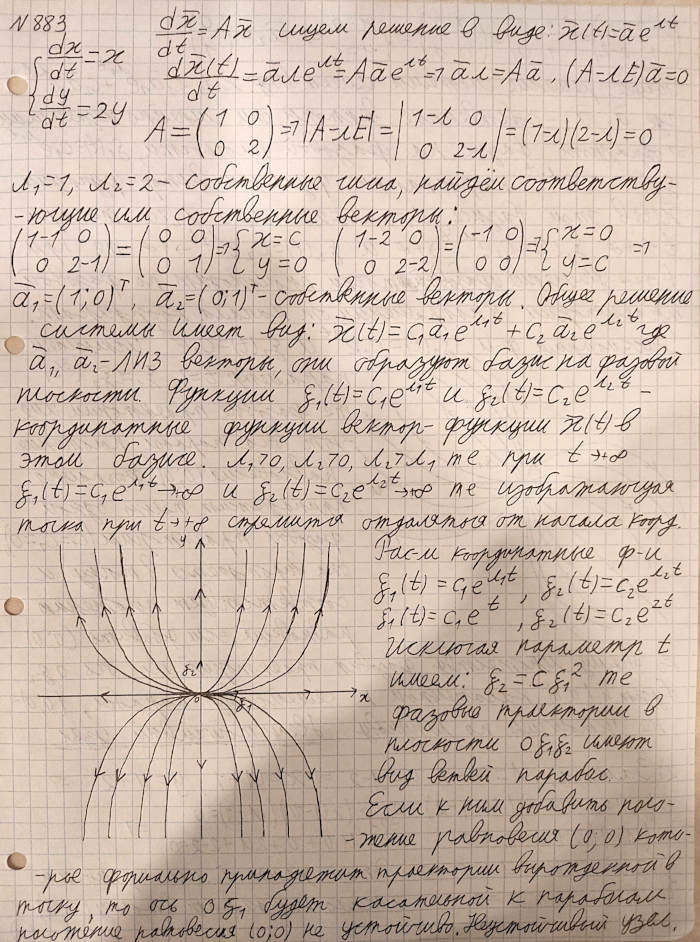 N 883
dx/dt = x
dy/dt = 2y
dx̄/dt = Ax̄ ищем решение в виде: x̄(t)=āe^{λt}
dx̄(t)/dt = āλe^{λt} = Aāe^{λt} ⇒ āλ = Aā, (A-λE)ā=0
A = (1 0; 0 2) ⇒ |A-λE| = |1-λ 0; 0 2-λ| = (1-λ)(2-λ)=0
λ₁=1, λ₂=2 - собственные числа, найдём соответству-
-ющие им собственные векторы:
(1-1 0; 0 2-1) = (0 0; 0 1) ⇒ {x=C; y=0 (1-2 0; 0 2-2) = (-1 0; 0 0) ⇒ {x=0; y=C ⇒
ā₁=(1;0)ᵀ, ā₂=(0;1)ᵀ - собственные векторы. Общее решение
системы имеет вид: x̄(t)=C₁ā₁e^{λ₁t}+C₂ā₂e^{λ₂t} где
ā₁, ā₂ - ЛНЗ векторы, они образуют базис на фазовой
плоскости. Функции ξ₁(t)=C₁e^{λ₁t} и ξ₂(t)=C₂e^{λ₂t} -
координатные функции вектор-функции x̄(t) в
этом базисе. λ₁>0, λ₂>0, λ₂>λ₁ те при t→+∞
ξ₁(t)=C₁e^{λ₁t}→+∞ и ξ₂(t)=C₂e^{λ₂t}→+∞ те изображающая
точка при t→+∞ стремится отдаляться от начала коорд.
y
ξ₂
0
ξ₁
x
Рас-м координатные ф-и
ξ₁(t)=C₁e^{λ₁t}, ξ₂(t)=C₂e^{λ₂t}
ξ₁(t)=C₁e^{t}, ξ₂(t)=C₂e^{2t}
Исключая параметр t
имеем: ξ₂=Cξ₁² те
фазовые траектории в
плоскости Oξ₁ξ₂ имеют
вид ветвей парабол.
Если к ним добавить поло-
-жение равновесия (0;0) кото-
-рое формально принадлежит траектории вырожденной в
точку, то ось Oξ₁ будет касательной к параболам
положение равновесия (0;0) не устойчиво. Неустойчивый узел.